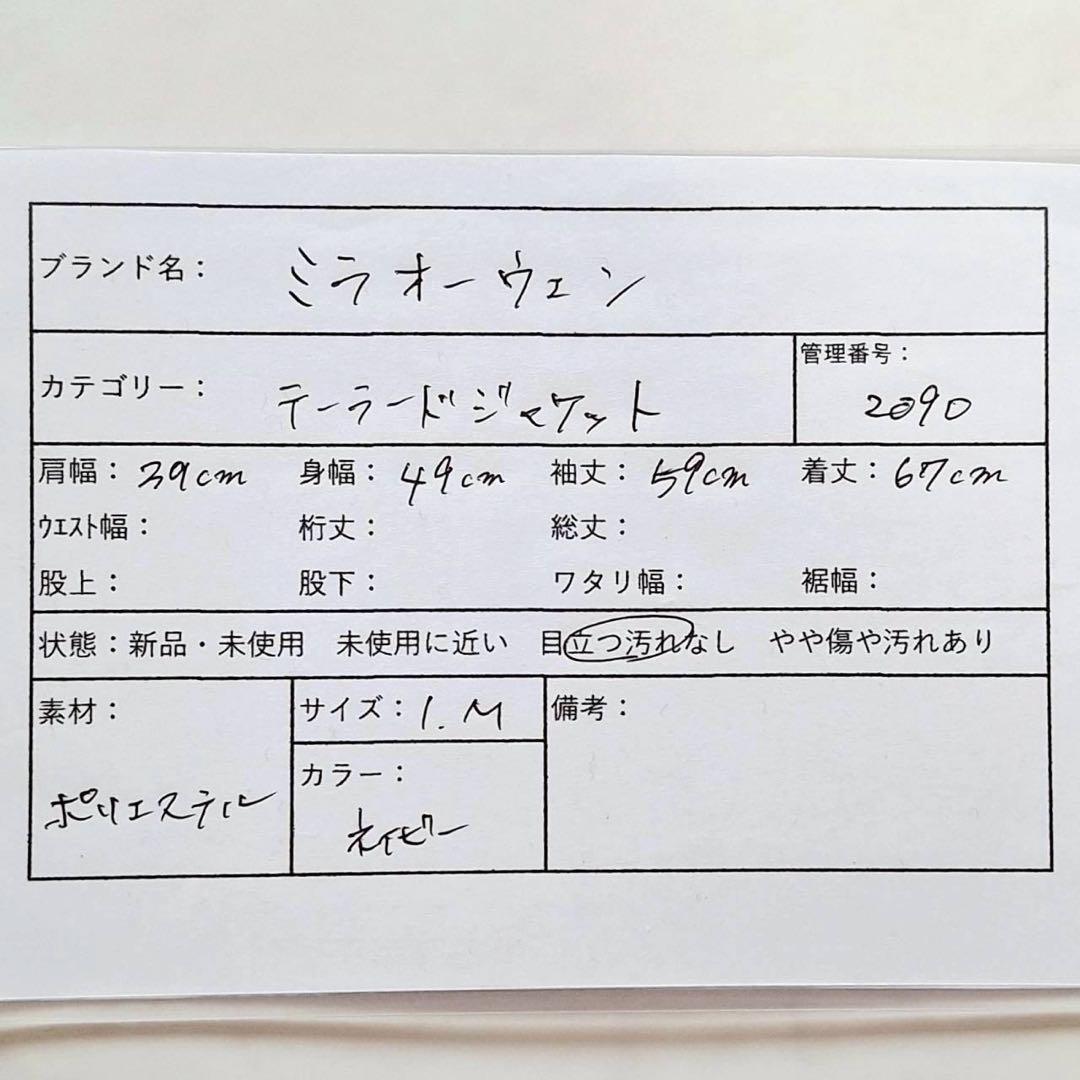 ブランド名： ミラオーウェン
カテゴリー： テーラードジャケット
管理番号：
2090
肩幅：39cm 身幅：49cm 袖丈：59cm 着丈：67cm
ｳｴｽﾄ幅： 桁丈： 総丈：
股上： 股下： ワタリ幅： 裾幅：
状態：新品・未使用 未使用に近い 目立つ汚れなし やや傷や汚れあり
素材：
ポリエステル
サイズ：1.M
カラー：
ネイビー
備考：